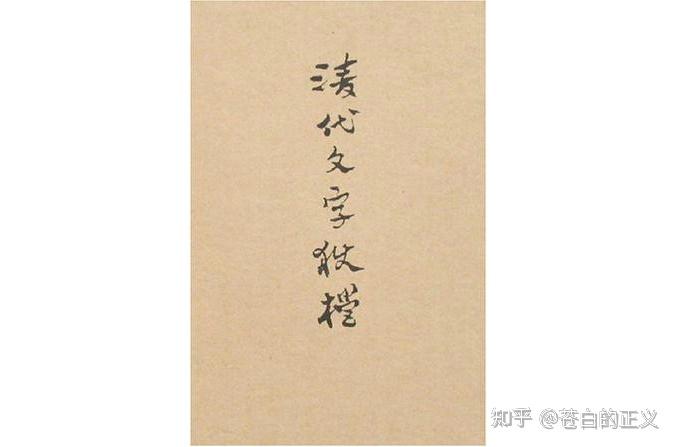 清代文字獄檔
知乎 @苍白的正义